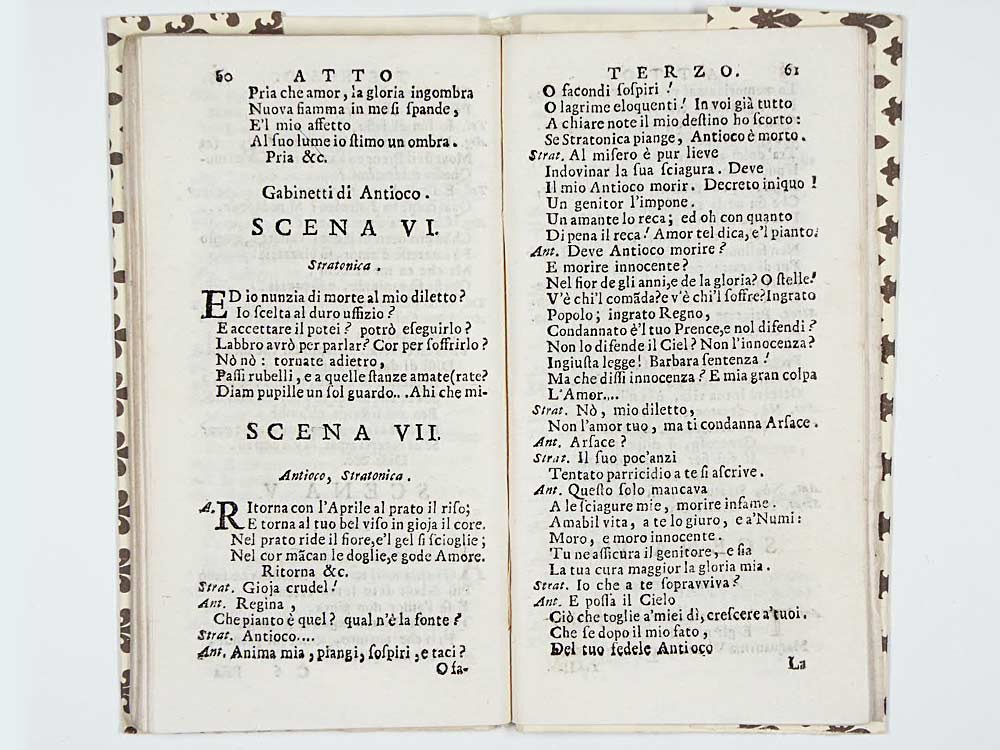 60 ATTO
Pria che amor, la gloria ingombra
Nuova fiamma in me si ſpande,
E'l mio affetto
Al ſuo lume io ſtimo un ombra.
Pria &c.
Gabinetti di Antioco.
SCENA VI.
Stratonica.
ED io nunzia di morte al mio diletto?
Io ſcelta al duro uffizio?
E accettare il potei? potrò eſeguirlo?
Labbro avrò per parlar? Cor per ſoffrirlo?
Nò nò: tornate adietro,
Paſſi rubelli, e a quelle ſtanze amate(rate?
Diam pupille un ſol guardo... Ahi che mi-
SCENA VII.
Antioco, Stratonica.
A. RItorna con l'Aprile al prato il riſo;
E torna al tuo bel viſo in gioja il core.
Nel prato ride il fiore,e'l gel ſi ſcioglie;
Nel cor mãcan le doglie,e gode Amore.
Ritorna &c.
Strat. Gioja crudel!
Ant. Regina,
Che pianto è quel? qual n'è la fonte?
Strat. Antioco....
Ant. Anima mia, piangi, ſoſpiri, e taci?
O fa-
TERZO. 61
O facondi ſoſpiri!
O lagrime eloquenti! In voi già tutto
A chiare note il mio deſtino ho ſcorto:
Se Stratonica piange, Antioco è morto.
Strat. Al miſero è pur lieve
Indovinar la ſua ſciagura. Deve
Il mio Antioco morir. Decreto iniquo!
Un genitor l'impone.
Un amante lo reca; ed oh con quanto
Di pena il reca! Amor tel dica, e'l pianto.
Ant. Deve Antioco morire?
E morire innocente?
Nel fior de gli anni,e de la gloria? O ſtelle!
V'è chi'l comãda?e v'è chi'l ſoffre?Ingrato
Popolo; ingrato Regno,
Condannato è'l tuo Prence,e nol difendi?
Non lo difende il Ciel? Non l'innocenza?
Ingiuſta legge! Barbara ſentenza!
Ma che diſſi innocenza? E mia gran colpa
L'Amor....
Strat. Nò, mio diletto,
Non l'amor tuo, ma ti condanna Arſace.
Ant. Arſace?
Strat. Il ſuo poc'anzi
Tentato parricidio a te ſi aſcrive.
Ant. Queſto ſolo mancava
A le ſciagure mie, morire infame.
Amabil vita, a te lo giuro, e a'Numi:
Moro, e moro innocente.
Tu ne aſſicura il genitore, e ſia
La tua cura maggior la gloria mia.
Strat. Io che a te ſopravviva?
Ant. E poſſa il Cielo
Ciò che toglie a'miei dì, creſcere a'tuoi.
Che ſe dopo il mio fato,
Del tuo fedele Antioco
La